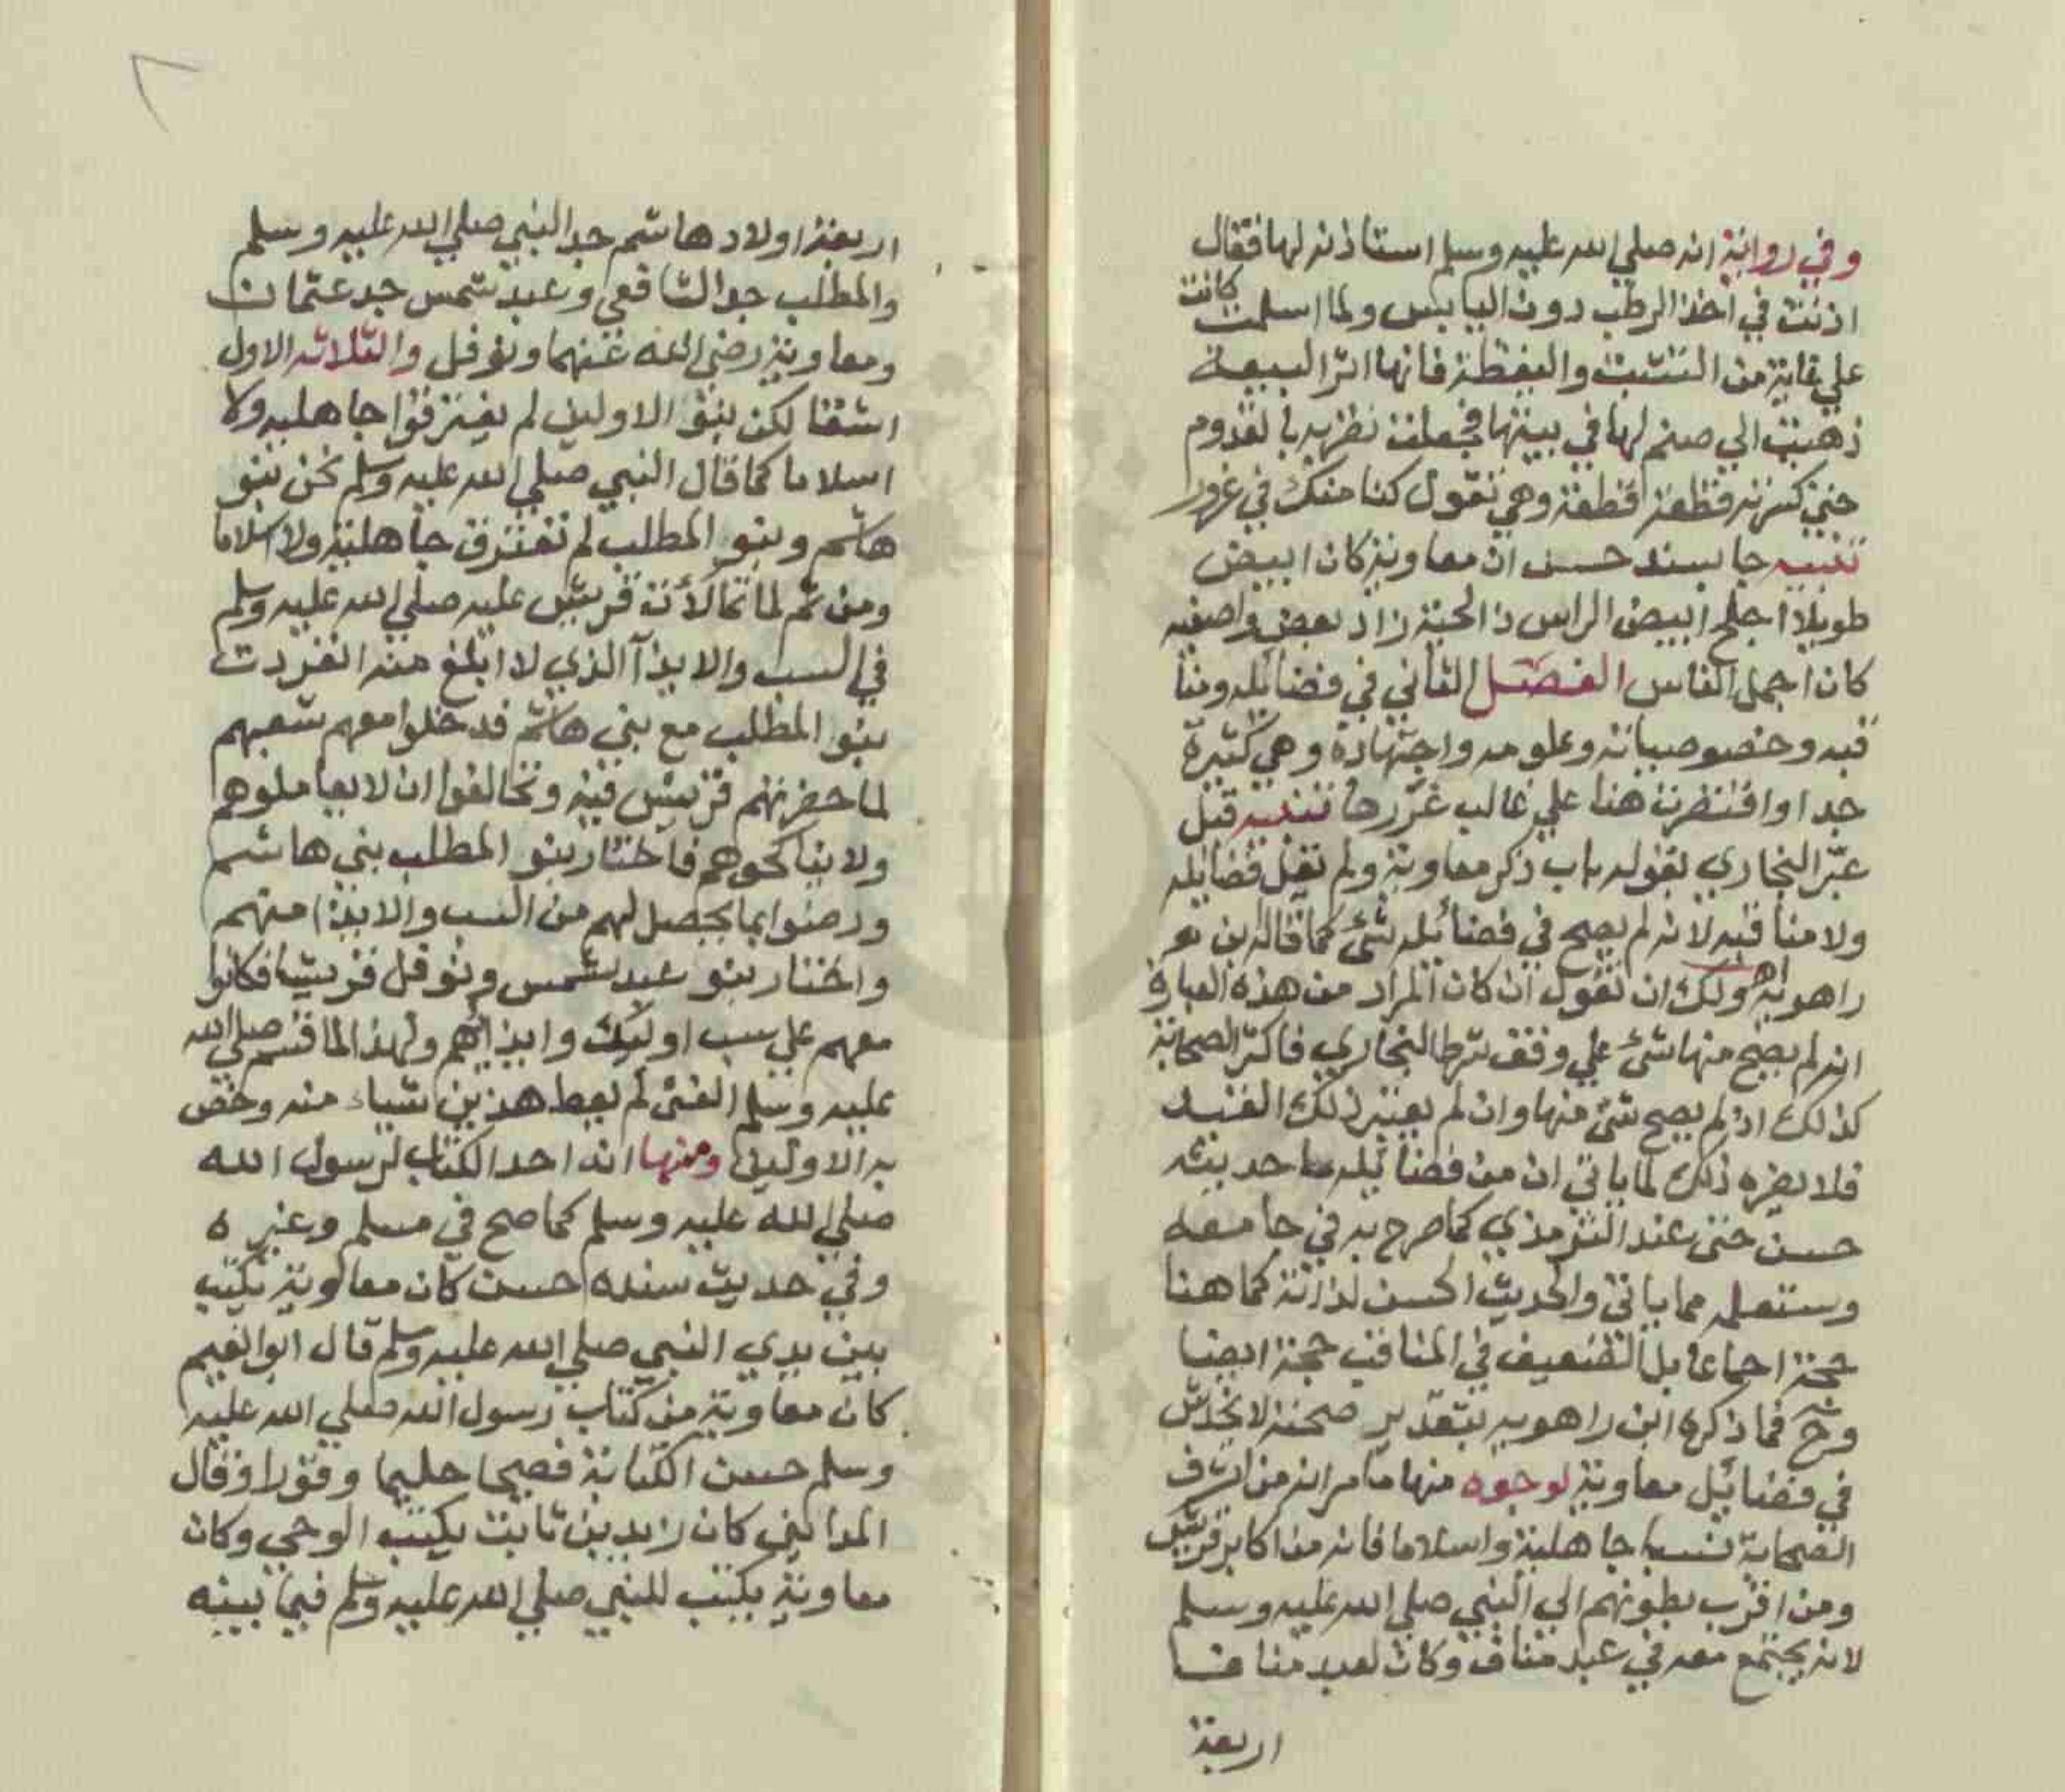 وفي رواية انه صلي الله عليه وسلم استاذنه لها فقال
اذنت في اخذ الرطب دون اليابس ولما اسلمت كانت
علي غاية من التثبت واليقظة فانها اثر البيعة
ذهبت الي صنم لها في بيتها فجعلت تضربه بالقدوم
حتي كسرته قطعة قطعة وهي تقول كنا منك في غرور
تنبيه جا بسند حسن ان معاوية كان ابيض
طويلا اجلح ابيض الراس ذا لحية زاد بعض واصفيه
كان اجمل الناس الفصل الثاني في فضائله ومنا
قبه وخصوصياته وعلومه واجتهاده وهي كثيرة
جدا واقتصرت هنا علي غالب غررها تنبيه قيل
عبّر البخاري بقوله باب ذكر معاوية ولم يقل فضائله
ولا مناقبه لانه لم يصح في فضائله شئ كما قاله ابن
راهويه اهـ ولك ان تقول ان كان المراد من هذه العبارة
انه لم يصح منها شئ علي وفق شرط البخاري فاكثر الصحابة
كذلك اذ لم يصح شئ منها وان لم يعتبر ذلك القيد
فلا يضره ذلك لما ياتي ان من فضائله ما حديثه
حسن حتي عند الترمذي كما صرح به في جامعه
وستعلمه مما ياتي والحديث الحسن لذاته كما هنا
حجة اجماعا بل الضعيف في المناقب حجة ايضا
وح فما ذكره ابن راهويه بتقدير صحته لا يخدش
في فضائل معاوية لوجوه منها ما مر انه من اشرف
الصحابة نسبا جاهلية واسلاما فانه من اكابر قريش
ومن اقرب بطونهم الي النبي صلي الله عليه وسلم
لانه يجتمع معه في عبد مناف وكان لعبد مناف
اربعة
اربعة اولاد هاشم جد النبي صلي الله عليه وسلم
والمطلب جد الشافعي وعبد شمس جد عثمان
ومعاوية رضي الله عنهما ونوفل والثلاثه الاول
اشقا لكن بنو الاولين لم يفترقوا جاهليه ولا
اسلاما كما قال النبي صلي الله عليه وسلم نحن بنو
هاشم وبنو المطلب لم نفترق جاهلية ولا اسلاما
ومن ثم لما تمالأت قريش عليه صلي الله عليه وسلم
في السب والايذآ الذي لا ابلغ منه انفردت
بنو المطلب مع بني هاشم فدخلوا معهم شعبهم
لما حصرتهم قريش فيه وتحالفوا ان لا يعاملوهم
ولا يناكحوهم فاختار بنو المطلب بني هاشم
ورضوا بما يحصل لهم من السب والايذا منهم
واختار بنو عبد شمس ونوفل قريشا فكانوا
معهم علي سب اوليك وايذائهم ولهذا لما قسم صلي الله
عليه وسلم الفئ لم يعط هذين شياء منه وخص
به الاولين ومنها انه احد الكتاب لرسول الله
صلي الله عليه وسلم كما صح في مسلم وغيره
وفي حديث سنده حسن كان معاوية يكتب
بين يدي النبي صلي الله عليه وسلم قال ابو نعيم
كان معاوية من كتاب رسول الله صلي الله عليه
وسلم حسن الكتابة فصيحا حليما وقورا وقال
المدائني كان زيد بن ثابت يكتب الوحي وكان
معاوية يكتب للنبي صلي الله عليه وسلم فيما بينه